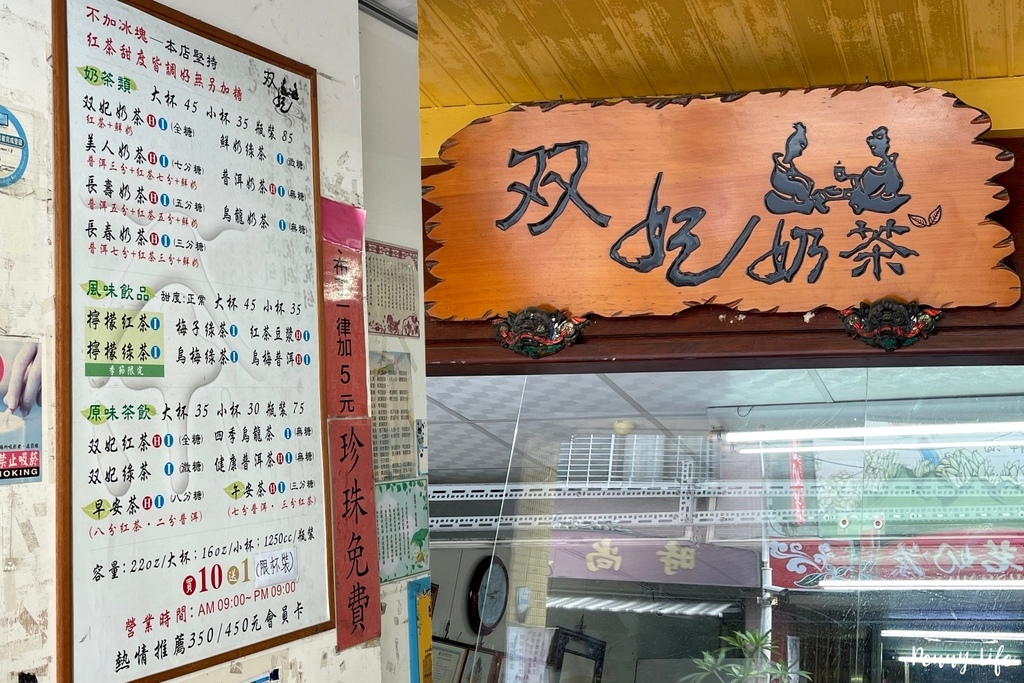 不加冰塊—本店堅持
紅茶甜度皆調好無另加糖
双妃
奶茶類 大杯 45 小杯 35 瓶裝 85
双妃奶茶 H I (全糖) 鮮奶綠茶 I (微糖)
紅茶+鮮奶
美人奶茶 H I (七分糖) 普洱奶茶 H I (無糖)
普洱三分+紅茶七分+鮮奶
長壽奶茶 H I (五分糖) 烏龍奶茶 I (無糖)
普洱五分+紅茶五分+鮮奶
長春奶茶 H I (三分糖)
普洱七分+紅茶三分+鮮奶
風味飲品 甜度:正常 大杯 45 小杯 35
檸檬紅茶 I 梅子綠茶 I 紅茶豆漿 H I
檸檬綠茶 I 烏梅綠茶 I 烏梅普洱 H I
季節限定
原味茶飲 大杯 35 小杯 30 瓶裝 75
双妃紅茶 H I (全糖) 四季烏龍茶 I (無糖)
双妃綠茶 I (微糖) 健康普洱茶 H I (無糖)
早安茶 H I (八分糖) 午安茶 H I (三分糖)
(八分紅茶・二分普洱) (七分普洱・三分紅茶)
容量:22oz/大杯;16oz/小杯;1250cc/瓶裝
買10送1(限杯裝)
營業時間:AM 09:00~PM 09:00
熱情推薦350/450元會員卡
一律加5元
珍珠免費
双妃奶茶
禁止吸菸
NO SMOKING
時尚
Penny Life